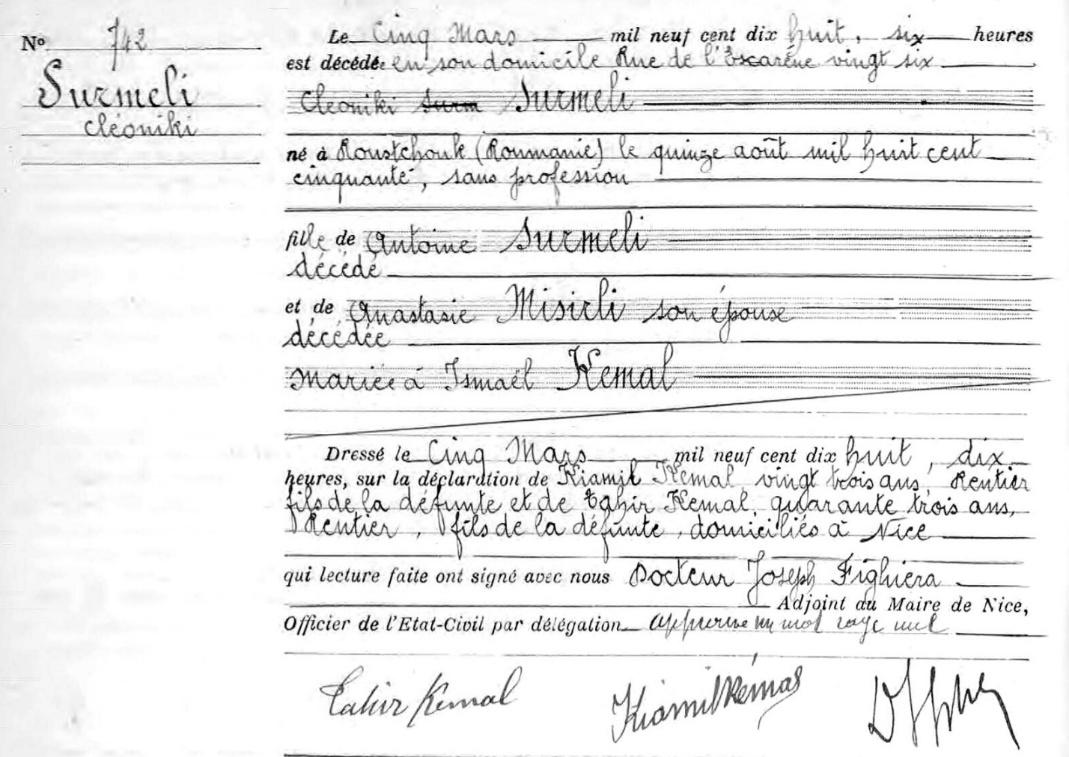 No 742
Surmeli
cléoniki
Le Cinq Mars mil neuf cent dix huit, six heures
est décédée en son domicile Rue de l'Escarène vingt six
Cléoniki Surm Surmeli
né à Roustchouk (Roumanie) le quinze août mil huit cent
cinquante, sans profession
fille de Antoine Surmeli
décédé
et de Anastasie Misirli son épouse
décédée
mariée à Ismaël Kemal
Dressé le Cinq Mars mil neuf cent dix huit, dix
heures, sur la déclaration de Kiamil Kemal vingt trois ans, Rentier
fils de la défunte et de Tahir Kemal, quarante trois ans,
Rentier, fils de la défunte, domiciliés à Nice
qui lecture faite ont signé avec nous Docteur Joseph Fighiera
Adjoint au Maire de Nice,
Officier de l'Etat-Civil par délégation approuvé un mot rayé nul
Tahir Kemal
Kiamil Kémal